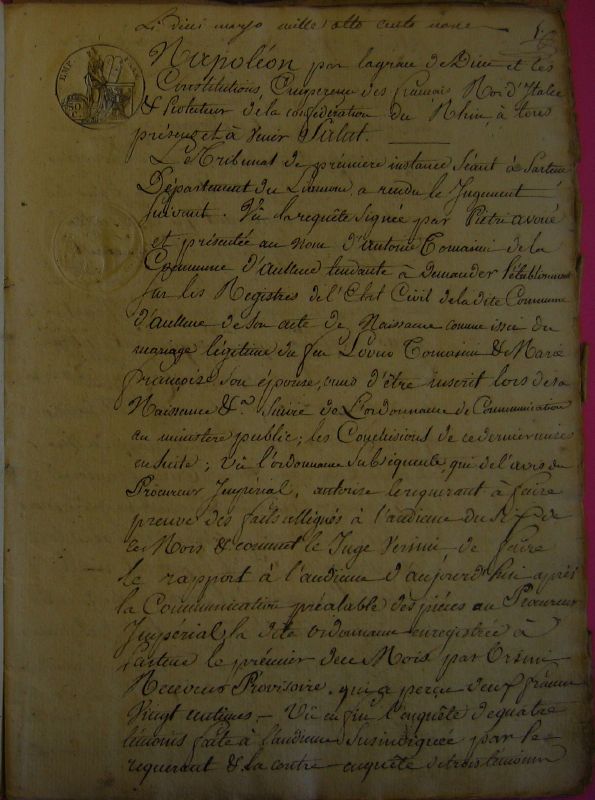 Li dieci marzo mille otto cento nove
Napoléon par la grace de Dieu et les
Constitutions, Empereur des français Roi d'Italie
& Protecteur de la confédération du Rhin, à tous
présens et à venir Salut.
Le Tribunal de première instance Séant à Sartene
Département du Liamone, a rendu le Jugement
Suivant. Vû la requête Signée par Piétri avoué
et présentée au nom d'antoine Tomasini de la
Commune d'aullene tendante à demander l'établissement
sur les Registres de l'Etat Civil de la dite Commune
d'aullene de Son acte de Naissance comme issu du
mariage légitime du feu Tomasini & de Marie
françoise Son épouse, d'être inscrit lors de sa
Naissance & a Suivie de L'ordonnance de Communication
au ministère public; les Conclusions de ce dernier mises
ensuite; Vû l'ordonnance Subséquente, qui de l'avis du
Procureur Impérial, autorise le requérant à faire
preuve des faits allégués à l'audience du Six de
ce Mois & commet le Juge Versini de faire
le rapport à l'audience d'aujourd'hui après
la Communication préalable des pièces au Procureur
Impérial, la dite ordonnance enregistrée à
Sartene le prémier de ce Mois par Orsini
Receveur Provisoire, qui a perçu deux francs
Vingt centimes — Vû enfin l'enquête de quatre
témoins faite à l'audience Susindiquée par le
requerant & la contre-enquête de trois témoins